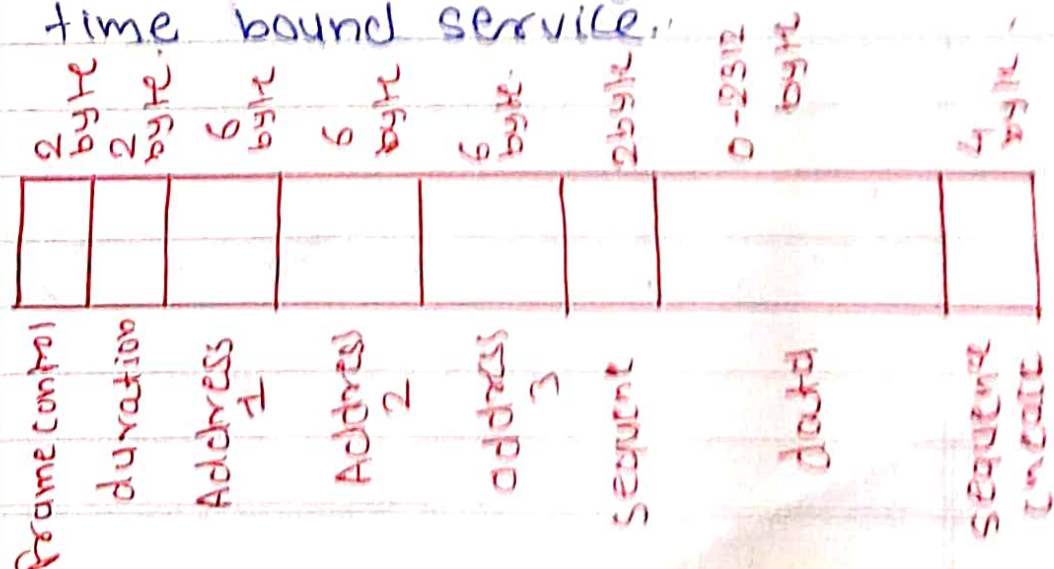 time bound service.
2 byte
2 byte.
6 byte
6 byte
6 byte.
2byte
0-2312 byte
4 byte.
frame control
duration
Address 1
Address 2
address 3
sequent
data
sequence